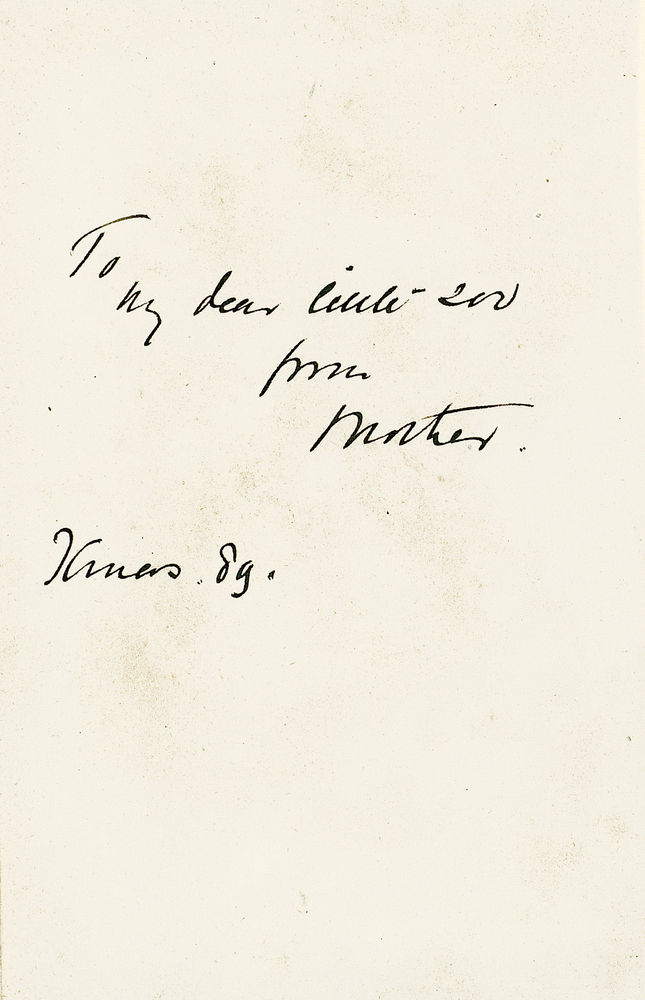 To
my dear little son
from
Mother.
Xmas. 89.